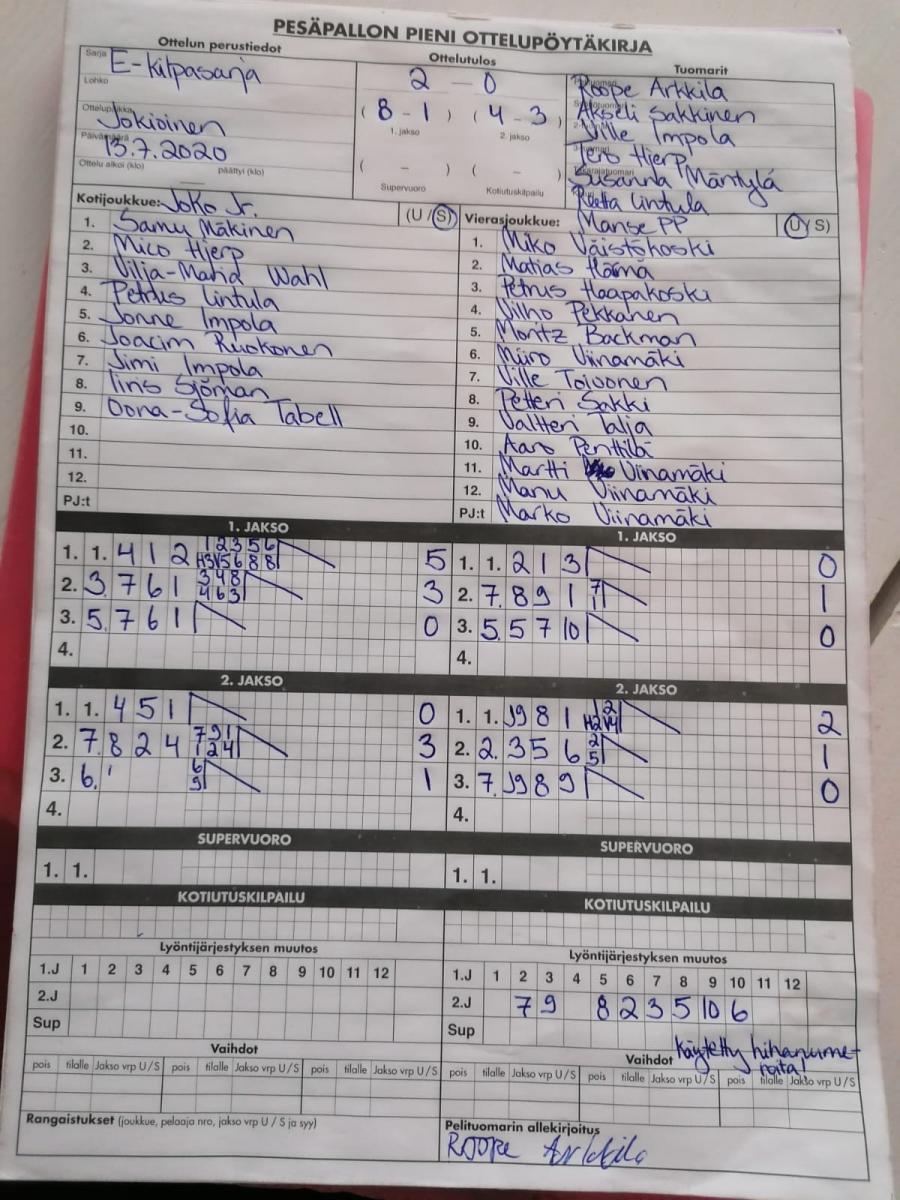 PESÄPALLON PIENI OTTELUPÖYTÄKIRJA
Ottelun perustiedot
Sarja E-kilpasarja
Lohko
Ottelupaikka Jokioinen
Päivämäärä 13.7.2020
Ottelu alkoi (klo) päättyi (klo)
Ottelutulos
2 - 0
( 8 - 1 ) ( 4 - 3 )
1. jakso 2. jakso
( - ) ( - )
Supervuoro Kotiutuskilpailu
Tuomarit
Roope Arkkila
Akseli Sakkinen
Ville Impola
Tero Hjerp
Susanna Mäntylä
Reetta Lintula
Kotijoukkue: Joko Jr. (U / S)
1. Samu Mäkinen
2. Mico Hjerp
3. Vilja-Maria Wahl
4. Petrus Lintula
5. Jonne Impola
6. Joacim Ruokonen
7. Jimi Impola
8. Iiris Sjöman
9. Oona-Sofia Tabell
10.
11.
12.
PJ:t
Vierasjoukkue: Manse PP (U / S)
1. Miko Väistökoski
2. Matias Hämä
3. Petrus Haapakoski
4. Vilho Pekkanen
5. Moritz Backman
6. Miiro Viinamäki
7. Ville Toivonen
8. Petteri Sakki
9. Valtteri Talja
10. Aaro Penttilä
11. Martti Viinamäki
12. Manu Viinamäki
PJ:t Marko Viinamäki
1. JAKSO
1. 1. 4 1 2 5
2. 3. 7 6 1 3 4 8 3
4 6 3
3. 5. 7 6 1 0
4.
1. JAKSO
1. 1. 2 1 3 0
2. 7. 8 9 1 7 1
1
3. 5. 5 7 10 0
4.
2. JAKSO
1. 1. 4 5 1 0
2. 7. 8 2 4 7 9 1 3
1 2 4
3. 6. 6 1
9
4.
2. JAKSO
1. 1. 19 8 1 2
2. 2. 3 5 6 2 1
5
3. 7. 19 8 9 0
4.
SUPERVUORO
1. 1.
SUPERVUORO
1. 1.
KOTIUTUSKILPAILU
KOTIUTUSKILPAILU
Lyöntijärjestyksen muutos
1.J 1 2 3 4 5 6 7 8 9 10 11 12
2.J
Sup
Lyöntijärjestyksen muutos
1.J 1 2 3 4 5 6 7 8 9 10 11 12
2.J 7 9 8 2 3 5 10 6
Sup
Käytetty hihanume-
roita!
Vaihdot
pois tilalle Jakso vrp U / S pois tilalle Jakso vrp U / S pois tilalle Jakso vrp U / S
Vaihdot
pois tilalle Jakso vrp U / S pois tilalle Jakso vrp U / S pois tilalle Jakso vrp U / S
Rangaistukset (joukkue, pelaaja nro, jakso vrp U / S ja syy)
Pelituomarin allekirjoitus
Roope Arkkila